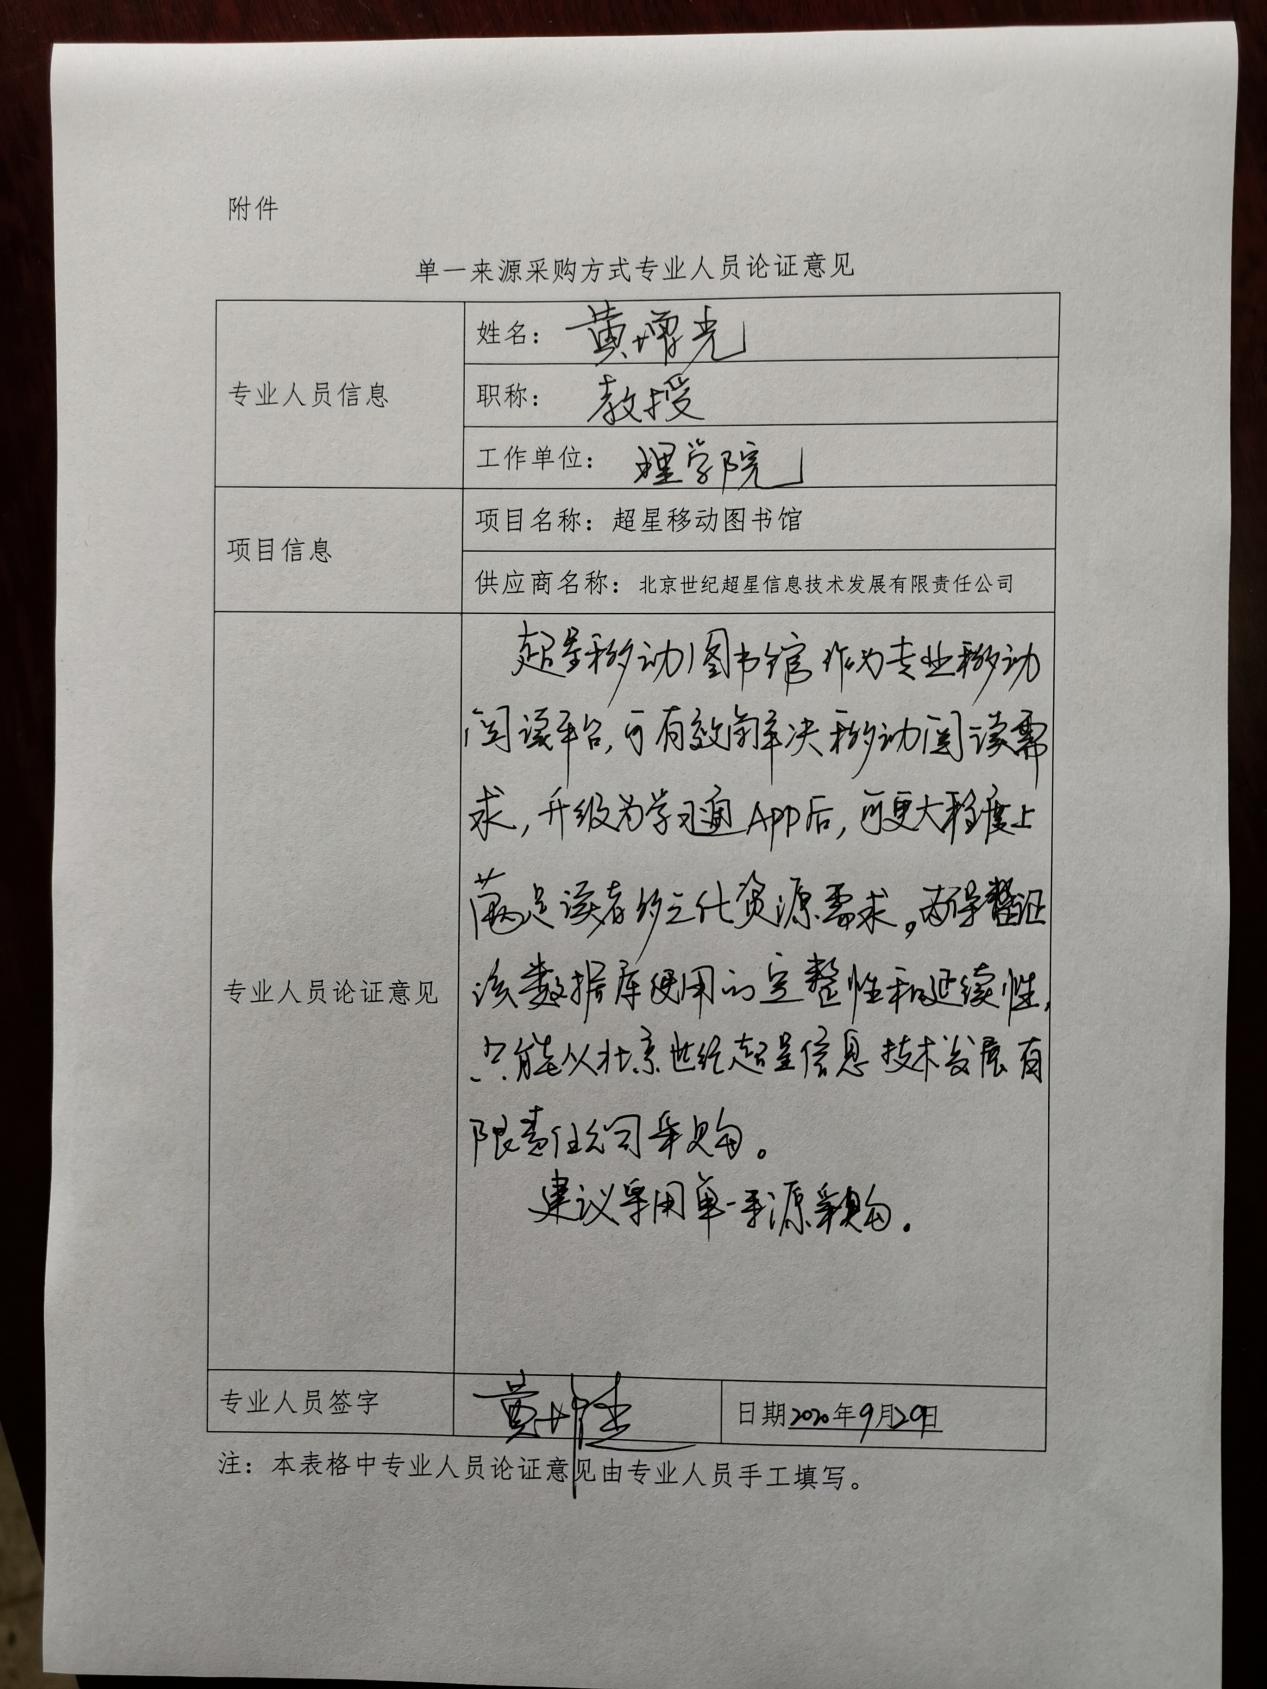 附件
单一来源采购方式专业人员论证意见
专业人员信息
姓名：黄增光
职称：教授
工作单位：理学院
项目信息
项目名称：超星移动图书馆
供应商名称：北京世纪超星信息技术发展有限责任公司
专业人员论证意见
超星移动图书馆作为专业移动
阅读平台，可有效解决移动阅读需
求，升级为学习通APP后，可更大程度上
满足读者的多元化资源需求。为保证
该数据库使用的完整性和延续性，
只能从北京世纪超星信息技术发展有
限责任公司采购。
建议采用单一来源采购。
专业人员签字
黄增光
日期2020年9月29日
注：本表格中专业人员论证意见由专业人员手工填写。